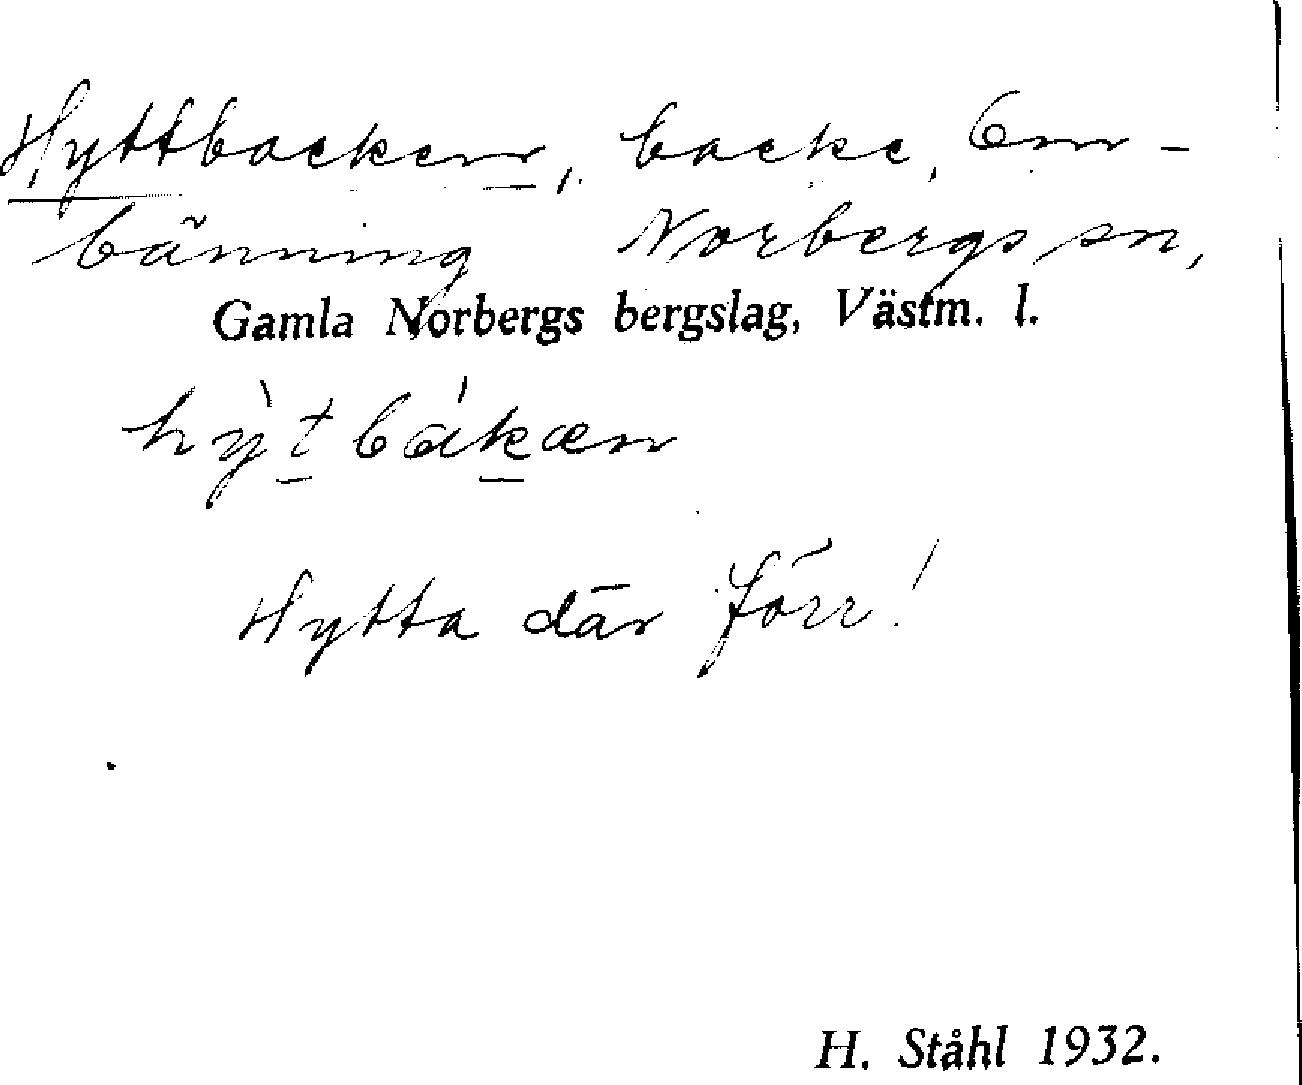 Hyttbacken, backe, Em-
bänning Norbergs sn,
Gamla Norbergs bergslag, Västm. l.
hỳtbákæn
Hytta där förr!
H. Ståhl 1932.